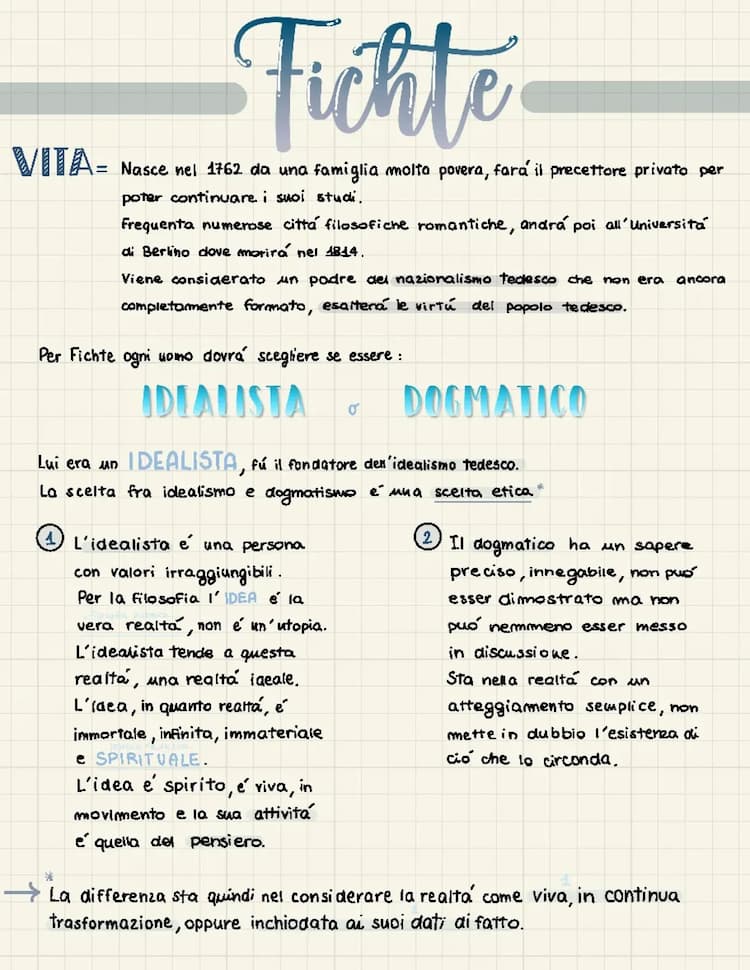 Fichte
VITA = Nasce nel 1762 da una famiglia molto povera, fará il precettore privato per
poter continuare i suoi studi.
Frequenta numerose cittá filosofiche romantiche, andrá poi all'Universitá
di Berlino dove morirá nel 1814.
Viene considerato un padre del nazionalismo tedesco che non era ancora
completamente formato, esalterá le virtú del popolo tedesco.
Per Fichte ogni uomo dovrá scegliere se essere :
IDEALISTA o DOGMATICO
Lui era un IDEALISTA, fú il fondatore dell'idealismo tedesco.
La scelta fra idealismo e dogmatismo é una scelta etica *
1 L'idealista é una persona
con valori irraggiungibili.
Per la filosofia l'IDEA é la
vera realtá, non é un'utopia.
L'idealista tende a questa
realtá, una realtá ideale.
L'idea, in quanto realtá, é
immortale, infinita, immateriale
e SPIRITUALE.
L'idea é spirito, é viva, in
movimento e la sua attivitá
é quella del pensiero.
2 Il dogmatico ha un sapere
preciso, innegabile, non puó
esser dimostrato ma non
puó nemmeno esser messo
in discussione.
Sta nella realtá con un
atteggiamento semplice, non
mette in dubbio l'esistenza di
ció che lo circonda.
* → La differenza sta quindi nel considerare la realtá come viva, in continua
trasformazione, oppure inchiodata ai suoi dati di fatto.